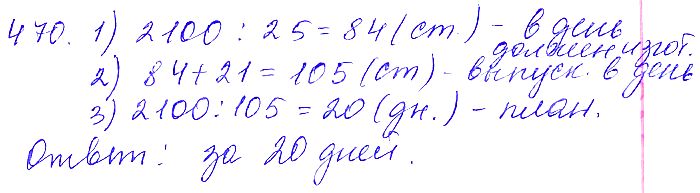 470. 1) 2100 : 25 = 84 (ст.) - в день
должен изгот.
2) 84 + 21 = 105 (ст) - выпуск. в день
3) 2100 : 105 = 20 (дн.) - план.
Ответ: за 20 дней.